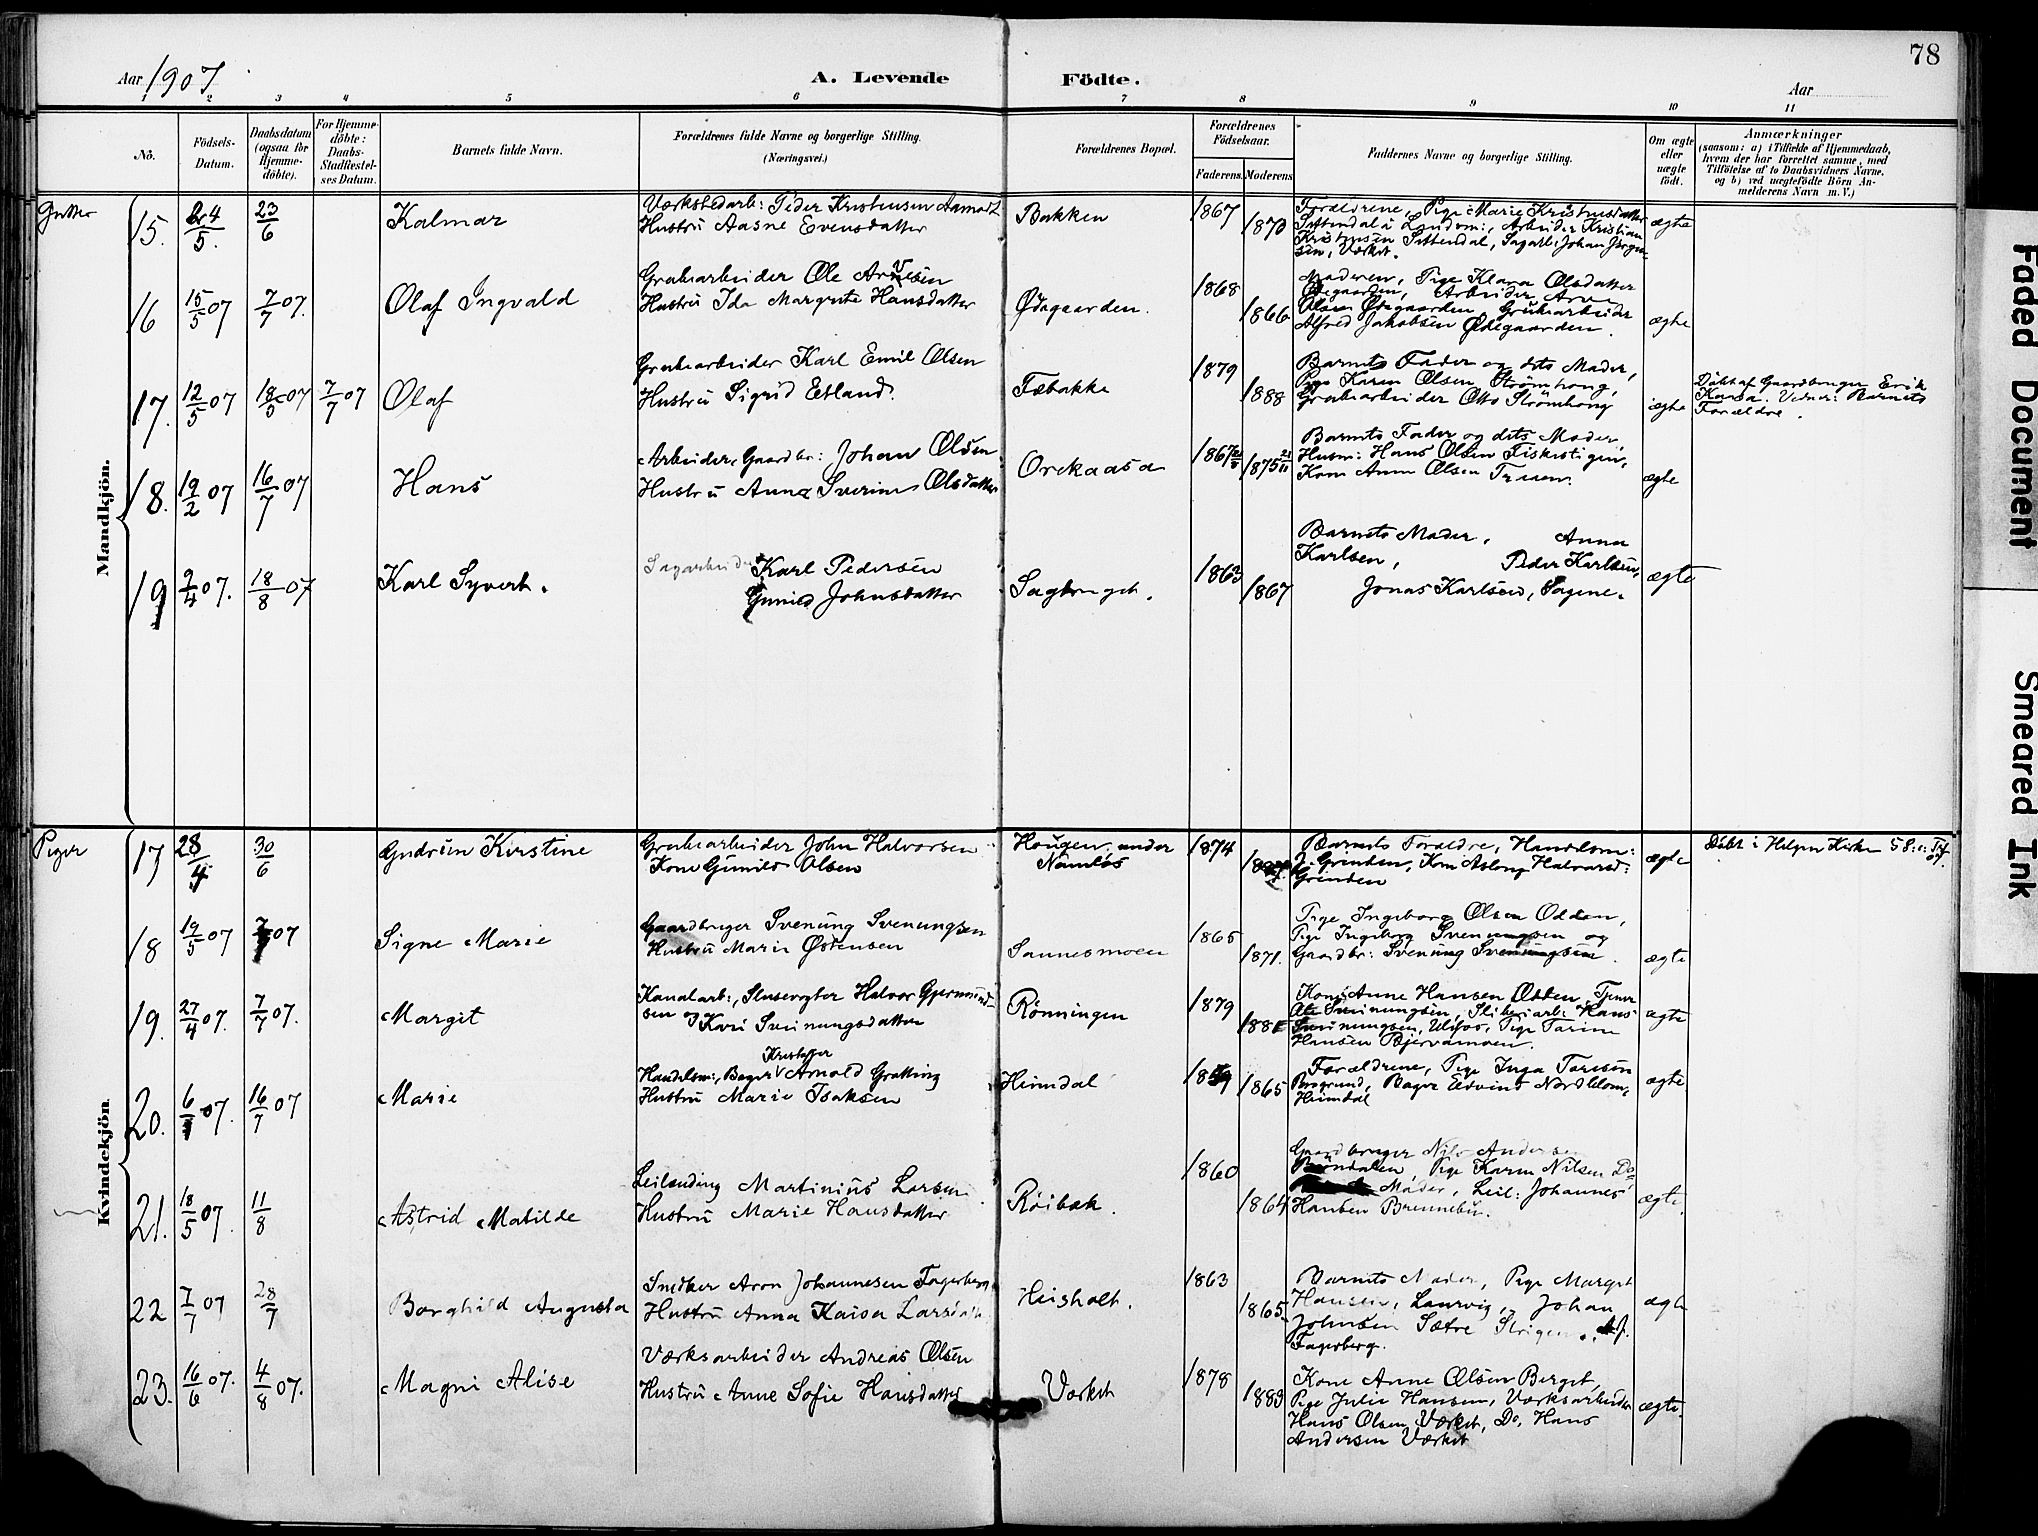 78
Aar 1907
A. Levende Födte.
Aar
1 2 3 4 5 6 7 8 9 10 11
No.
Födsels-Datum.
Daabsdatum (ogsaa for Hjemme-döbte).
For Hjemme-döbte: Daabs-Stadfæstel-ses Datum.
Barnets fulde Navn.
Forældrenes fulde Navne og borgerlige Stilling. (Næringsvei.)
Forældrenes Bopæl.
Forældrenes Födselsaar.
Faderens. Moderens.
Faddernes Navne og borgerlige Stilling.
Om ægte eller uægte födt.
Anmærkninger
(saasom: a) i Tilfælde af Hjemmedaab,
hvem der har forrettet samme, med
Tilföielse af to Daabsvidners Navne.
og b) ved uægtefödte Börn An-
melderens Navn m. V.)
Gutter
Mandkjön.
15. 24/5. 23/6 Kalmar
Værkstedarb: Peder Kristensen Aamodt
Hustru Aasne Evensdatter
Bakken 1867 1873
Forældrene, Pige Marie Kristensdatter
Sittendal, Arbeider Kristian
Kristensen Sittendal, Sagarb: Johan Jörgen-
sen, Værket.
ægte
16 15/5 07 7/7 07. Olaf Ingvald
Grubearbeider Ole Arvesen
Hustru Ida Margrete Hansdatter
Ødegaarden. 1868 1866
Moderen, Pige Klara Olsdatter
Ødegaarden, Arbeider Arve
Olsen Ødegaarden, Grubearbeider
Alfred Jakobsen Ødegaarden.
ægte
17. 12/5 07 18/5 07 7/7 07 Olaf
Grubearbeider Karl Emil Olsen
Hustru Sigrid Eetland.
Fæbakke 1879 1888
Barnets Fader og dets Moder,
Pige Karen Olsen Strömhong,
Grubearbeider Otto Strömhong
ægte
Döbt af Gaardbruger Erik
Kaasa. Vidner: Barnets
Forældre.
18. 19/2 07 16/7 07 Hans
Arbeider, Gaardbr: Johan Olsen
Hustru Anna Severine Olsdatter
Orekaasa 1867 1875
Barnets Fader og dets Moder,
Husm: Hans Olsen Fiskestigen,
Kone Anne Olsen
ægte
19 2/4 07. 18/8 07 Karl Syvert.
Sagarbeider Karl Pedersen
Gunild Johnsdatter
Sagbruget. 1863 1867
Barnets Moder, Anna
Karlsen, Peder Karlsen,
Jonas Karlsen, Sagene.
ægte
Piger
Kvindekjön
17 28/4 30/6 Gudrun Kirstine
Grubearbeider John Halvorsen
Kone Gunild Olsen
Haugen under
Namlös
1874
Barnets Forældre, Handelsm:
J. Grinden, Kone Aslong Halvorsd:
Grinden
ægte
Döbt i Helgen Kirke
18 19/5 07 7/7 07 Signe Marie
Gaardbruger Svenung Svenungsen
Hustru Marie Østensen
Sannesmoen 1865 1871.
Pige Ingeborg Olsen Odden,
Pige Ingeborg Svenungsen og
Gaardbr: Svenung Svenungsen.
ægte
19. 27/4 07. 7/7 07. Margit
Kanalarb:, Slusevogter Halvor Gjermund-
sen og
Kari Sveinungsdatter
Rönningen 1879 1881
Kone Anne Hansen Odden, Tjener
Ole Sveinungsen, Sliberiarb: Hans
Sveinungsen, Ulefos, Pige Tarine
Hansen Bjervamoen.
ægte
20. 6/ 07. 16/7 07 Marie
Kristoffer
Handelsm:, Bager Arnold Grotting
Hustru Marie Isaksen
Heimdal 1859 1865
Forældrene, Pige Inga Toresen
Brogrund, Bager Edvind Nordblom,
Heimdal
ægte
21. 18/5 07. 11/8 Astrid Matilde
Leilending Martinius Larsen
Hustru Marie Hansdatter
Röibæk. 1860 1864
Gaardbruger Nils Andersen
Pige Karen Nilsen Do,
Moder, Leil: Johannes
Hansen Brennebu.
ægte.
22 7/7 07 28/7 Borghild Augusta
Snedker Aron Johannesen Fagerberg
Hustru Anna Kaisa Larsdatter
Heisholt. 1863 1865.
Barnets Moder, Pige Margit
Hansen, Laurvig, Johan
Johnsen Sætre
Fagerberg.
ægte
23. 16/6 07. 4/8 07. Magni Alise
Værksarbeider Andreas Olsen
Hustru Anne Sofie Hansdatter
Værket 1878 1883
Kone Anne Olsen Berget,
Pige Julie Hansen, Værksarbeider
Hans Olsen Værket, Do, Hans
Andersen Værket
ægte.
Faded Document
Smeared Ink